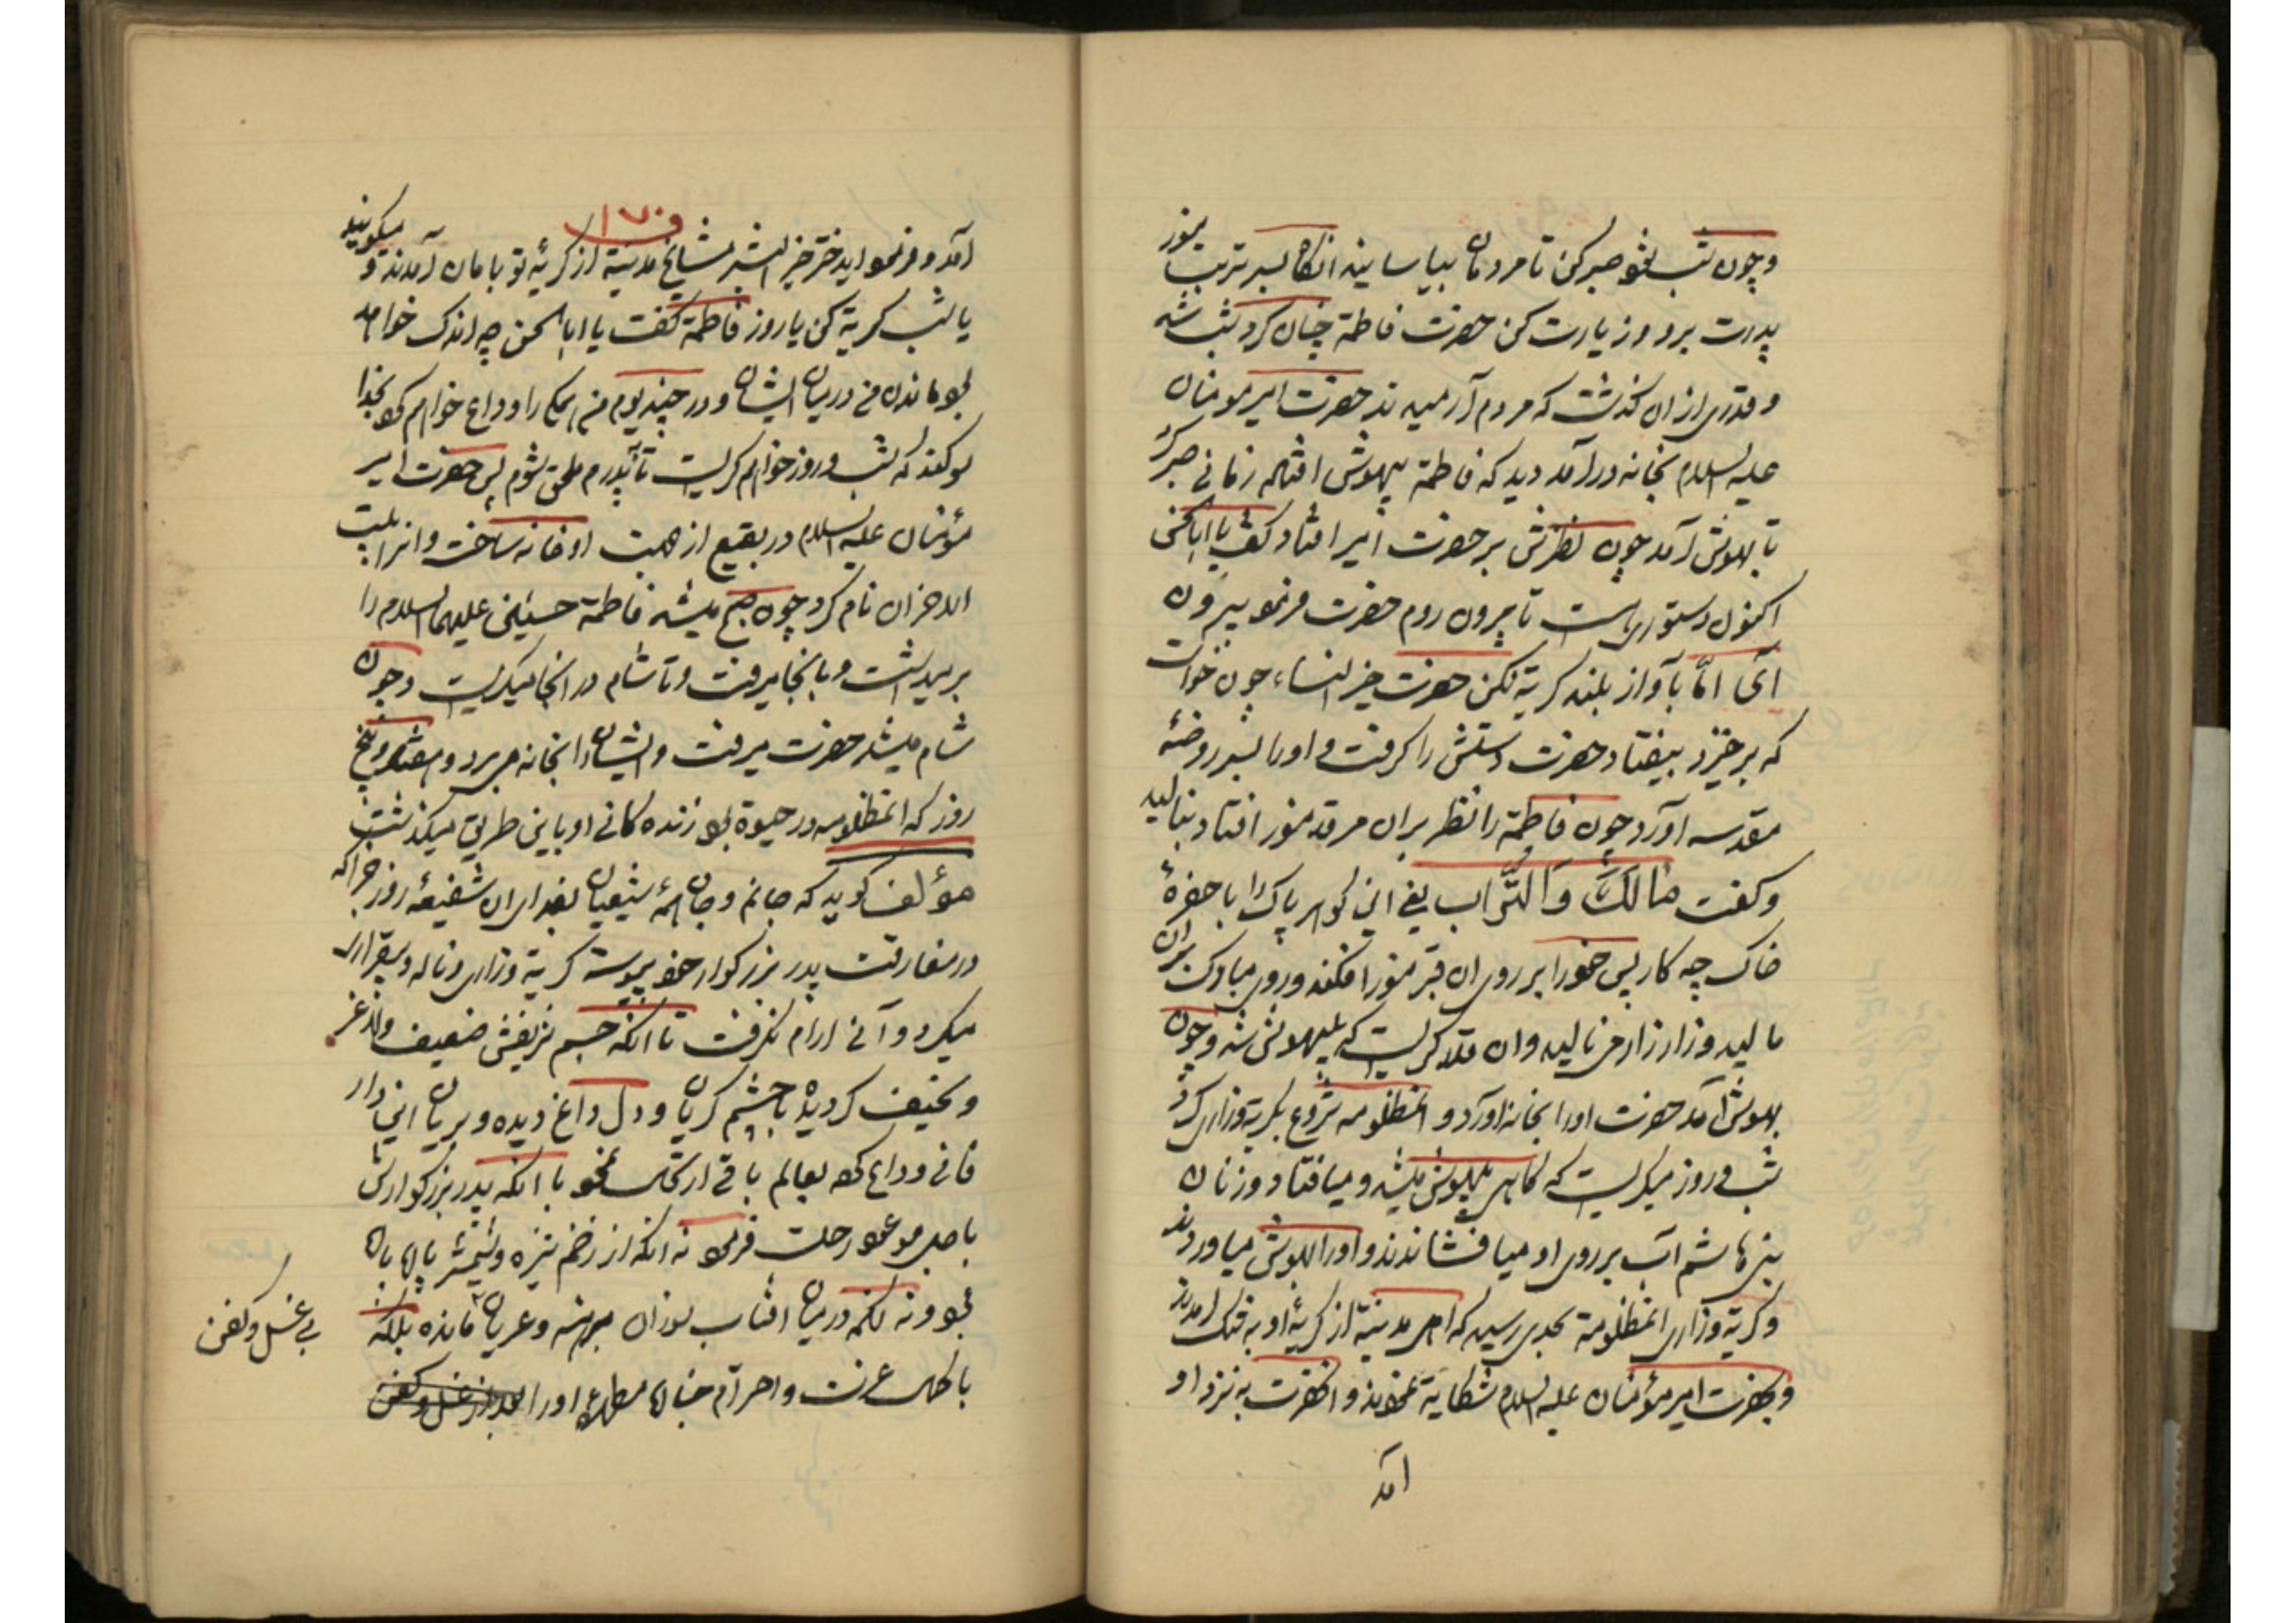 وچون شب شود صبر کن تا مردمان بیاسایند انکاه بسر تربت منور
پدرت برو و زیارت کن حضرت فاطمة چنان کرد شب شد
و قدری از ان کذشت که مردم آرمیدند حضرت امیر مومنان
علیه السلام بخانه درآمد دید که فاطمة بیهوش افتاده زمانی صبر کرد
تا بهوش آمد چون نظرش بر حضرت امیر افتاد کفت یا ابا الحسن
اکنون دستوری هست تا بیرون روم حضرت فرمود بیرون
آی امّا بآواز بلند کریة مکن حضرت خیر النساء چون خواست
که برخیزد بیفتاد حضرت دستش را کرفت و او را بسر روضهٔ
مقدسه آورد چون فاطمة را نظر بران مرقد منور افتاد بنالید
و کفت مالك والتراب یعنی این کوهر پاک را با حفرهٔ
خاک چه کار پس خود را بر روی ان قبر منور افکند و روی مبارک بران
مالید و زار زار می نالید و ان قدر کریست که بیهوش شد و چون
بهوش آمد حضرت او را بخانه آورد و انمظلومه شروع بکریة وزاری کرد
شب و روز میکریست که کاهی بیهوش میشد و میافتاد و زنان
بنی هاشم آب بر روی او میافشاندند و او را بهوش میاوردند
و کریة وزاری انمظلومة بحدی رسید که اهل مدینة از کریهٔ او به تنک امدند
و بحضرت امیر مؤمنان علیه السلام شکایة نمودند و انحضرت به نزد او
آمد
۱۷۰
آمد و فرمود اید ختر خیر البشر مشایخ مدینة از کریهٔ تو بامان آمدند و میکویند
یا شب کریة کن یا روز فاطمة کفت یا ابا الحسن چه اندک خواهد
بود ماندن من در میان ایشان و در چند یوم من همکی را وداع خواهم کرد بخدا
سوکند که شب و روز خواهم کریست تا بپدرم ملحق شوم پس حضرت امیر
مؤمنان علیه السلام در بقیع از جهت او خانه ساخت و انرا بیت
الاحزان نام کرد چون صبح میشد فاطمة حسنین علیهما السلام را
بر میداشت و بانجا میرفت و تا شام در انجا میکریست و چون
شام میشد حضرت میرفت و ایشان را بخانه می برد و هفتاد و پنج
روز که انمظلومه در حیوة بود زنده کانی او باین طریق میکذشت
مؤلف کوید که جانم و جان همهٔ شیعیان بفدای ان شفیعهٔ روز جزا که
در مفارقت پدر بزرکوار خود پیوسته کریة وزاری و ناله و بیقراری
میکرد و آنی ارام نکرفت تا انکه جسم شریفش ضعیف و لاغر
و نحیف کردیده با چشم کریان و دل داغ دیده و بریان این دار
فانی وداع کرده بعالم باقی ارتحال نمود با انکه پدر بزرکوارش
باجل موعود رحلت فرمود نه انکه از زخم نیزه و شمشیر پاره پاره
بود و نه انکه در میان افتاب سوزان برهنه و عریان مانده بلکه
با کمال عزت و احترام جنازه مطهره او را بعد از غسل و کفن
بی غسل و کفن